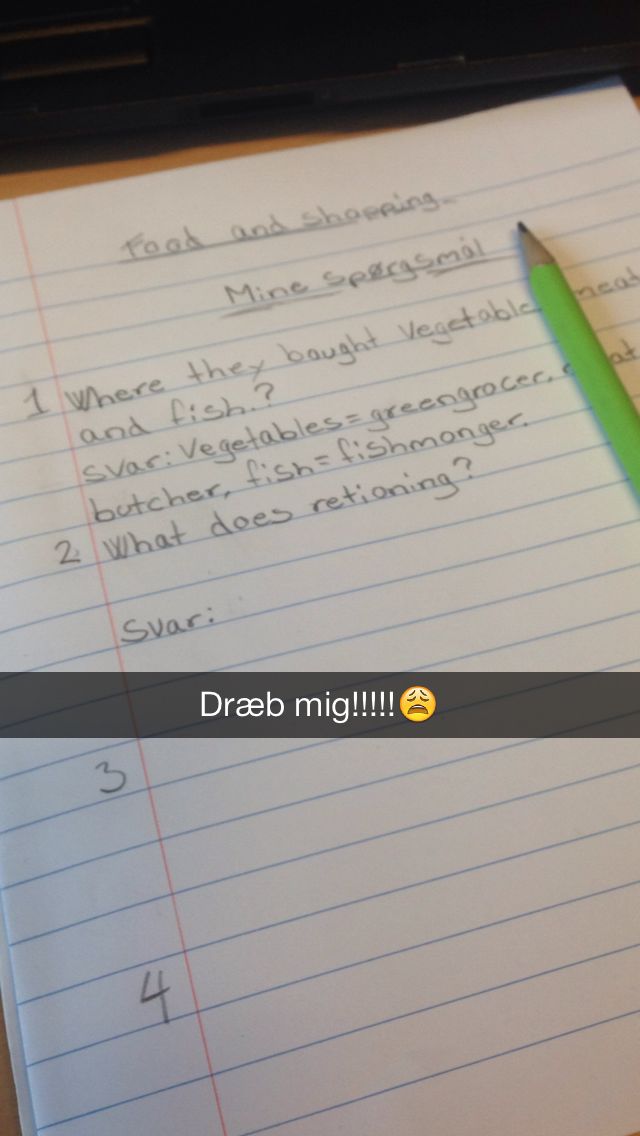 Food and shopping.
Mine spørgsmål
1 Where they bought Vegetable meat
and fish.?
svar: Vegetables=greengrocer,
butcher, fish=fishmonger.
2 What does retioning?
Svar:
Dræb mig!!!!!😩
3
4